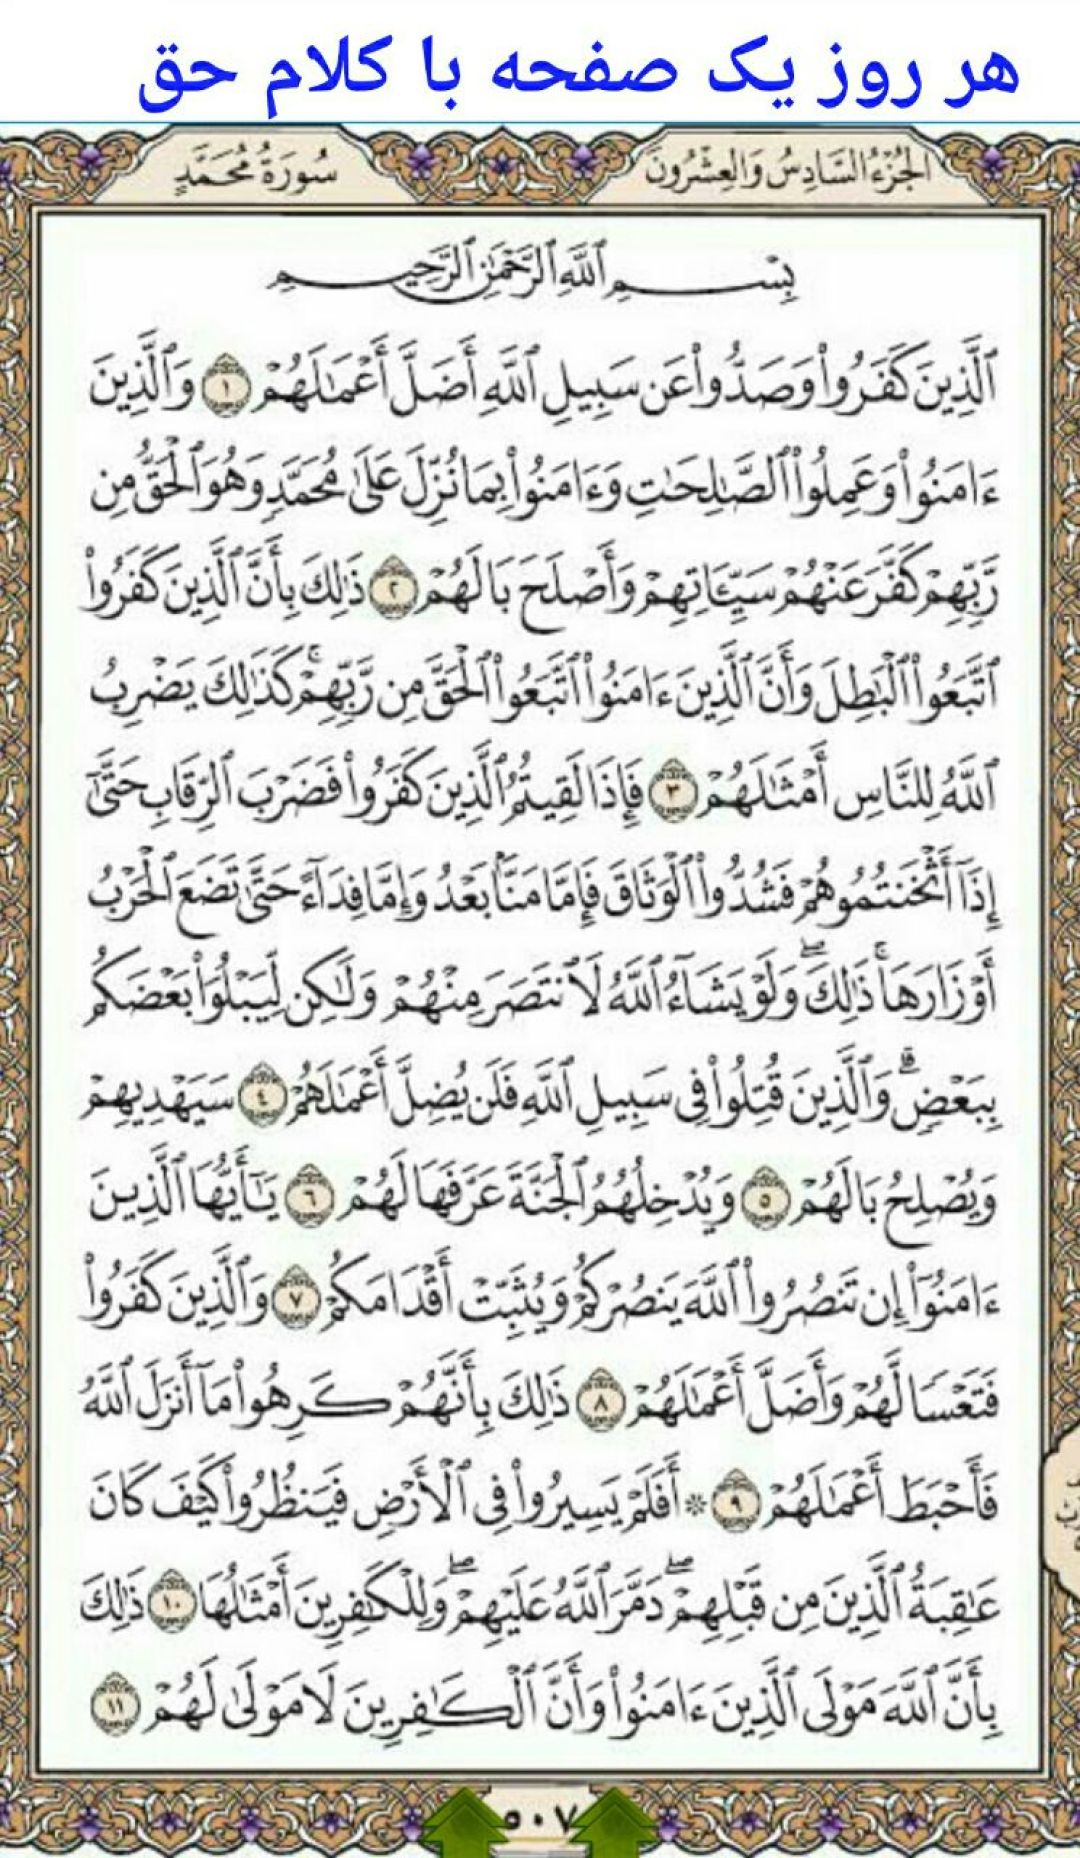 هر روز یک صفحه با کلام حق
الجُزْءُ السَّادِسُ وَالعِشْرُونَ
سُورَةُ مُحَمَّدٍ
بِسْمِ ٱللَّهِ ٱلرَّحْمَٰنِ ٱلرَّحِيمِ
ٱلَّذِينَ كَفَرُوا۟ وَصَدُّوا۟ عَن سَبِيلِ ٱللَّهِ أَضَلَّ أَعْمَٰلَهُمْ ١ وَٱلَّذِينَ
ءَامَنُوا۟ وَعَمِلُوا۟ ٱلصَّٰلِحَٰتِ وَءَامَنُوا۟ بِمَا نُزِّلَ عَلَىٰ مُحَمَّدٍ وَهُوَ ٱلْحَقُّ مِن
رَّبِّهِمْ كَفَّرَ عَنْهُمْ سَيِّـَٔاتِهِمْ وَأَصْلَحَ بَالَهُمْ ٢ ذَٰلِكَ بِأَنَّ ٱلَّذِينَ كَفَرُوا۟
ٱتَّبَعُوا۟ ٱلْبَٰطِلَ وَأَنَّ ٱلَّذِينَ ءَامَنُوا۟ ٱتَّبَعُوا۟ ٱلْحَقَّ مِن رَّبِّهِمْ ۚ كَذَٰلِكَ يَضْرِبُ
ٱللَّهُ لِلنَّاسِ أَمْثَٰلَهُمْ ٣ فَإِذَا لَقِيتُمُ ٱلَّذِينَ كَفَرُوا۟ فَضَرْبَ ٱلرِّقَابِ حَتَّىٰٓ
إِذَآ أَثْخَنتُمُوهُمْ فَشُدُّوا۟ ٱلْوَثَاقَ فَإِمَّا مَنًّۢا بَعْدُ وَإِمَّا فِدَآءً حَتَّىٰ تَضَعَ ٱلْحَرْبُ
أَوْزَارَهَا ۚ ذَٰلِكَ ۖ وَلَوْ يَشَآءُ ٱللَّهُ لَٱنتَصَرَ مِنْهُمْ وَلَٰكِن لِّيَبْلُوَا۟ بَعْضَكُم
بِبَعْضٍ ۗ وَٱلَّذِينَ قُتِلُوا۟ فِى سَبِيلِ ٱللَّهِ فَلَن يُضِلَّ أَعْمَٰلَهُمْ ٤ سَيَهْدِيهِمْ
وَيُصْلِحُ بَالَهُمْ ٥ وَيُدْخِلُهُمُ ٱلْجَنَّةَ عَرَّفَهَا لَهُمْ ٦ يَٰٓأَيُّهَا ٱلَّذِينَ
ءَامَنُوٓا۟ إِن تَنصُرُوا۟ ٱللَّهَ يَنصُرْكُمْ وَيُثَبِّتْ أَقْدَامَكُمْ ٧ وَٱلَّذِينَ كَفَرُوا۟
فَتَعْسًا لَّهُمْ وَأَضَلَّ أَعْمَٰلَهُمْ ٨ ذَٰلِكَ بِأَنَّهُمْ كَرِهُوا۟ مَآ أَنزَلَ ٱللَّهُ
فَأَحْبَطَ أَعْمَٰلَهُمْ ٩ ۞ أَفَلَمْ يَسِيرُوا۟ فِى ٱلْأَرْضِ فَيَنظُرُوا۟ كَيْفَ كَانَ
عَٰقِبَةُ ٱلَّذِينَ مِن قَبْلِهِمْ ۖ دَمَّرَ ٱللَّهُ عَلَيْهِمْ ۖ وَلِلْكَٰفِرِينَ أَمْثَٰلُهَا ١٠ ذَٰلِكَ
بِأَنَّ ٱللَّهَ مَوْلَى ٱلَّذِينَ ءَامَنُوا۟ وَأَنَّ ٱلْكَٰفِرِينَ لَا مَوْلَىٰ لَهُمْ ١١
٥٠٧